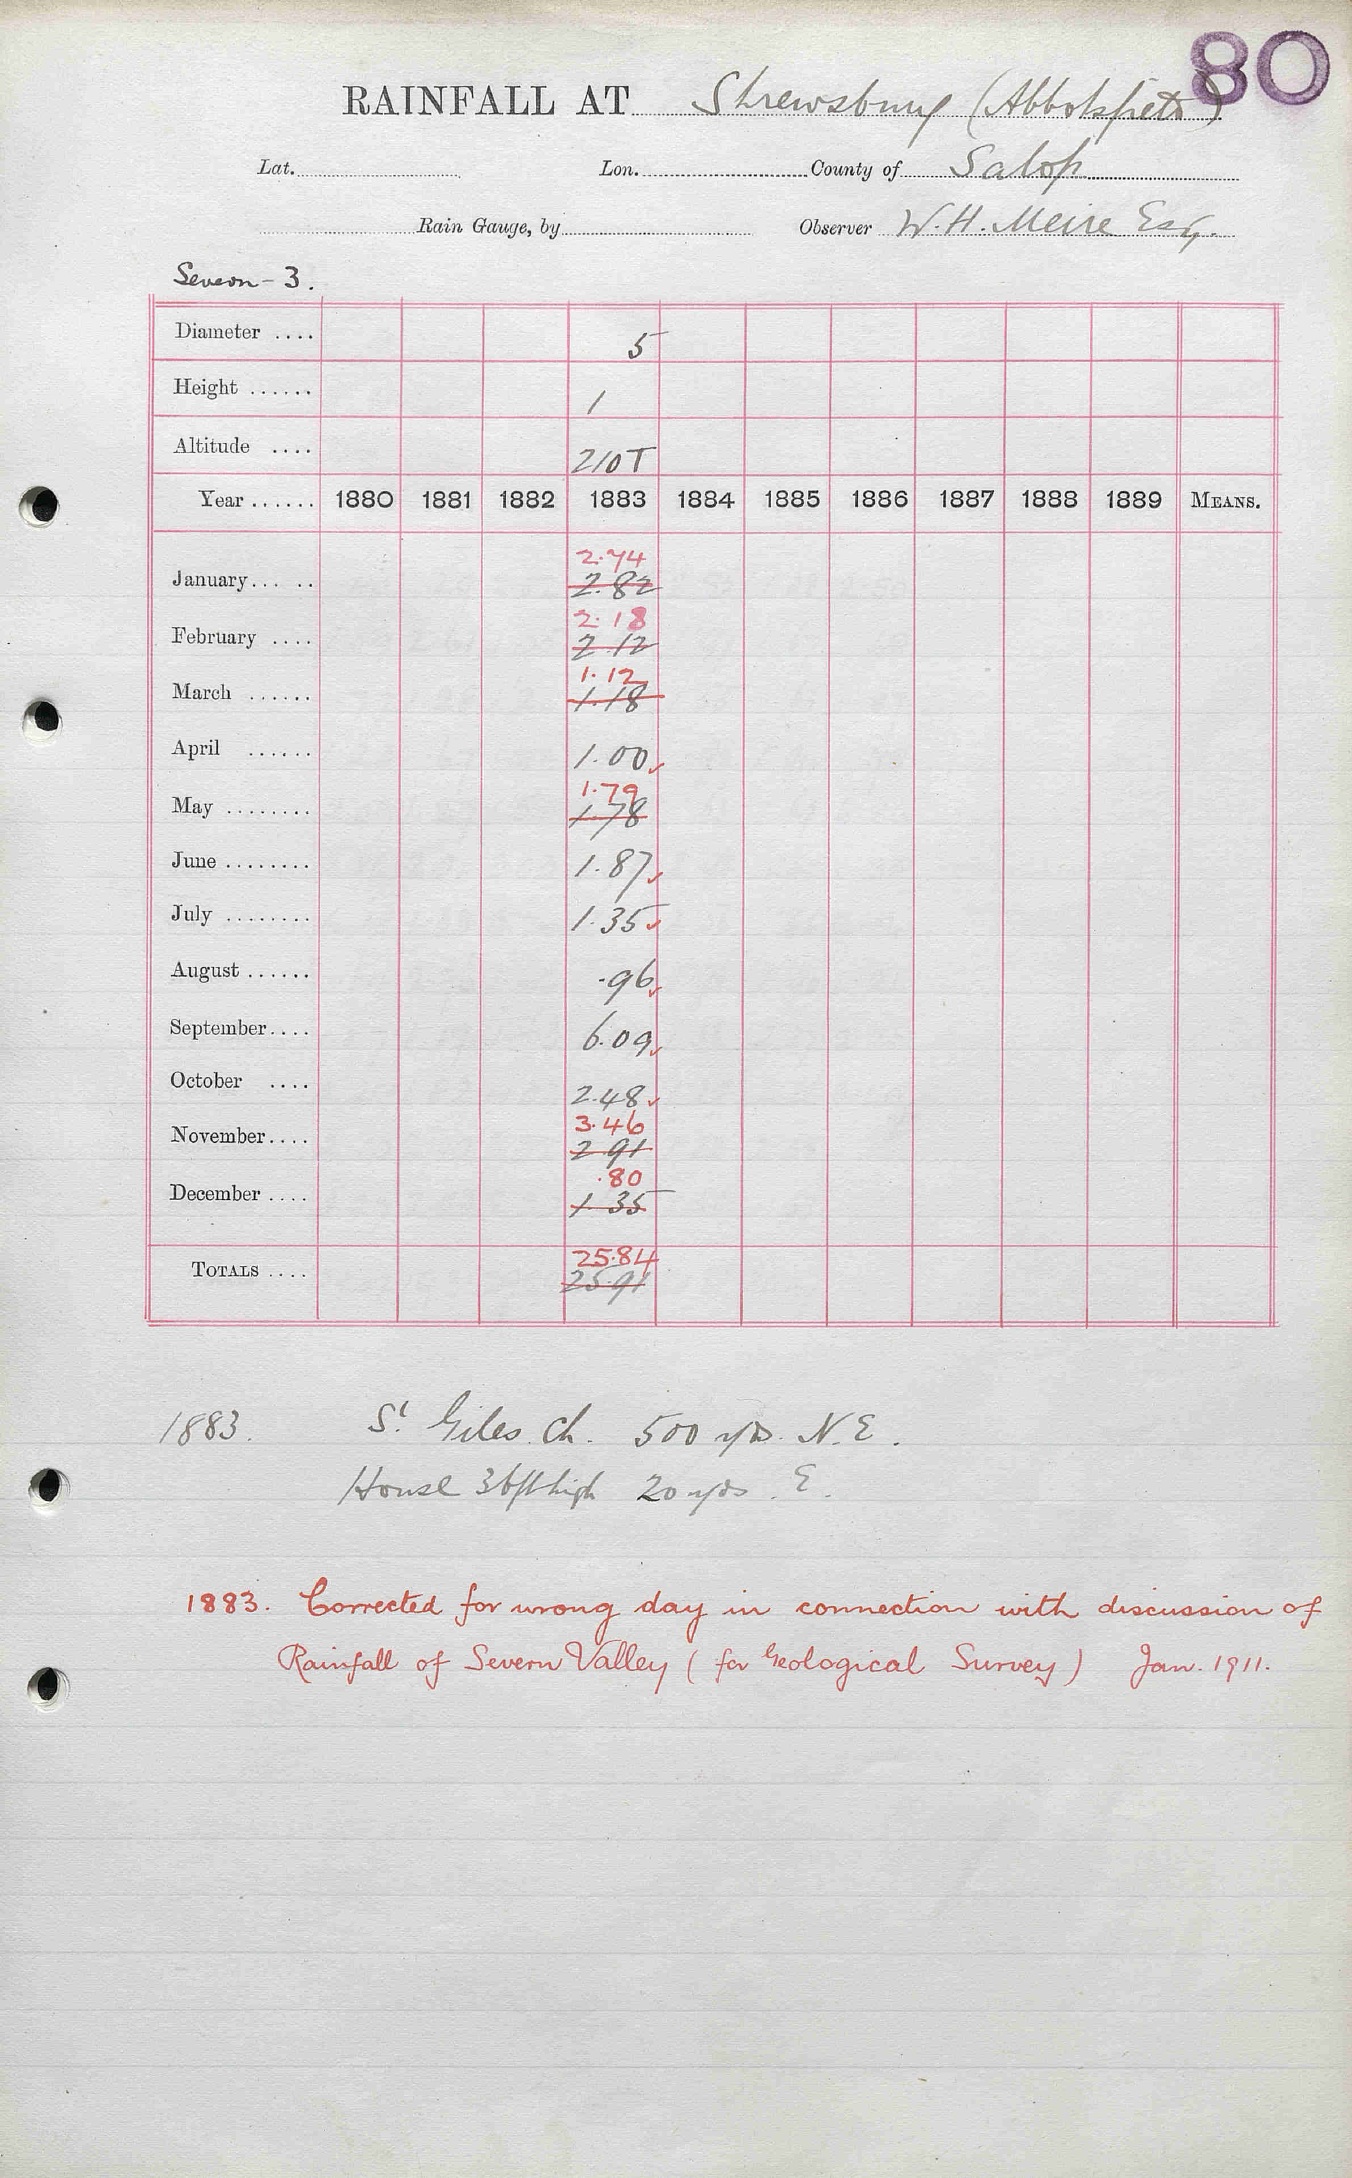 80
RAINFALL AT Shrewsbury (Abbotsfield)
Lat. Lon. County of Salop
Rain Gauge, by Observer W. H. Meire Esq.
Severn - 3.
Diameter .... 5
Height ...... 1
Altitude .... 210T
Year ...... 1880 1881 1882 1883 1884 1885 1886 1887 1888 1889 MEANS.
2.74
January... .. 2.82
2.18
February .... 2.12
1.12
March ...... 1.18
April ...... 1.00 ✓
1.79
May ........ 1.78
June ........ 1.87 ✓
July ........ 1.35 ✓
August ...... .96 ✓
September.... 6.09 ✓
October .... 2.48 ✓
3.46
November.... 2.91
.80
December .... 1.35
25.84
TOTALS .... 25.91
1883. St Giles Ch. 500 yds. N.E.
House 36ft high 20 yds. E.
1883. Corrected for wrong day in connection with discussion of
Rainfall of Severn Valley (for Geological Survey) Jan. 1911.